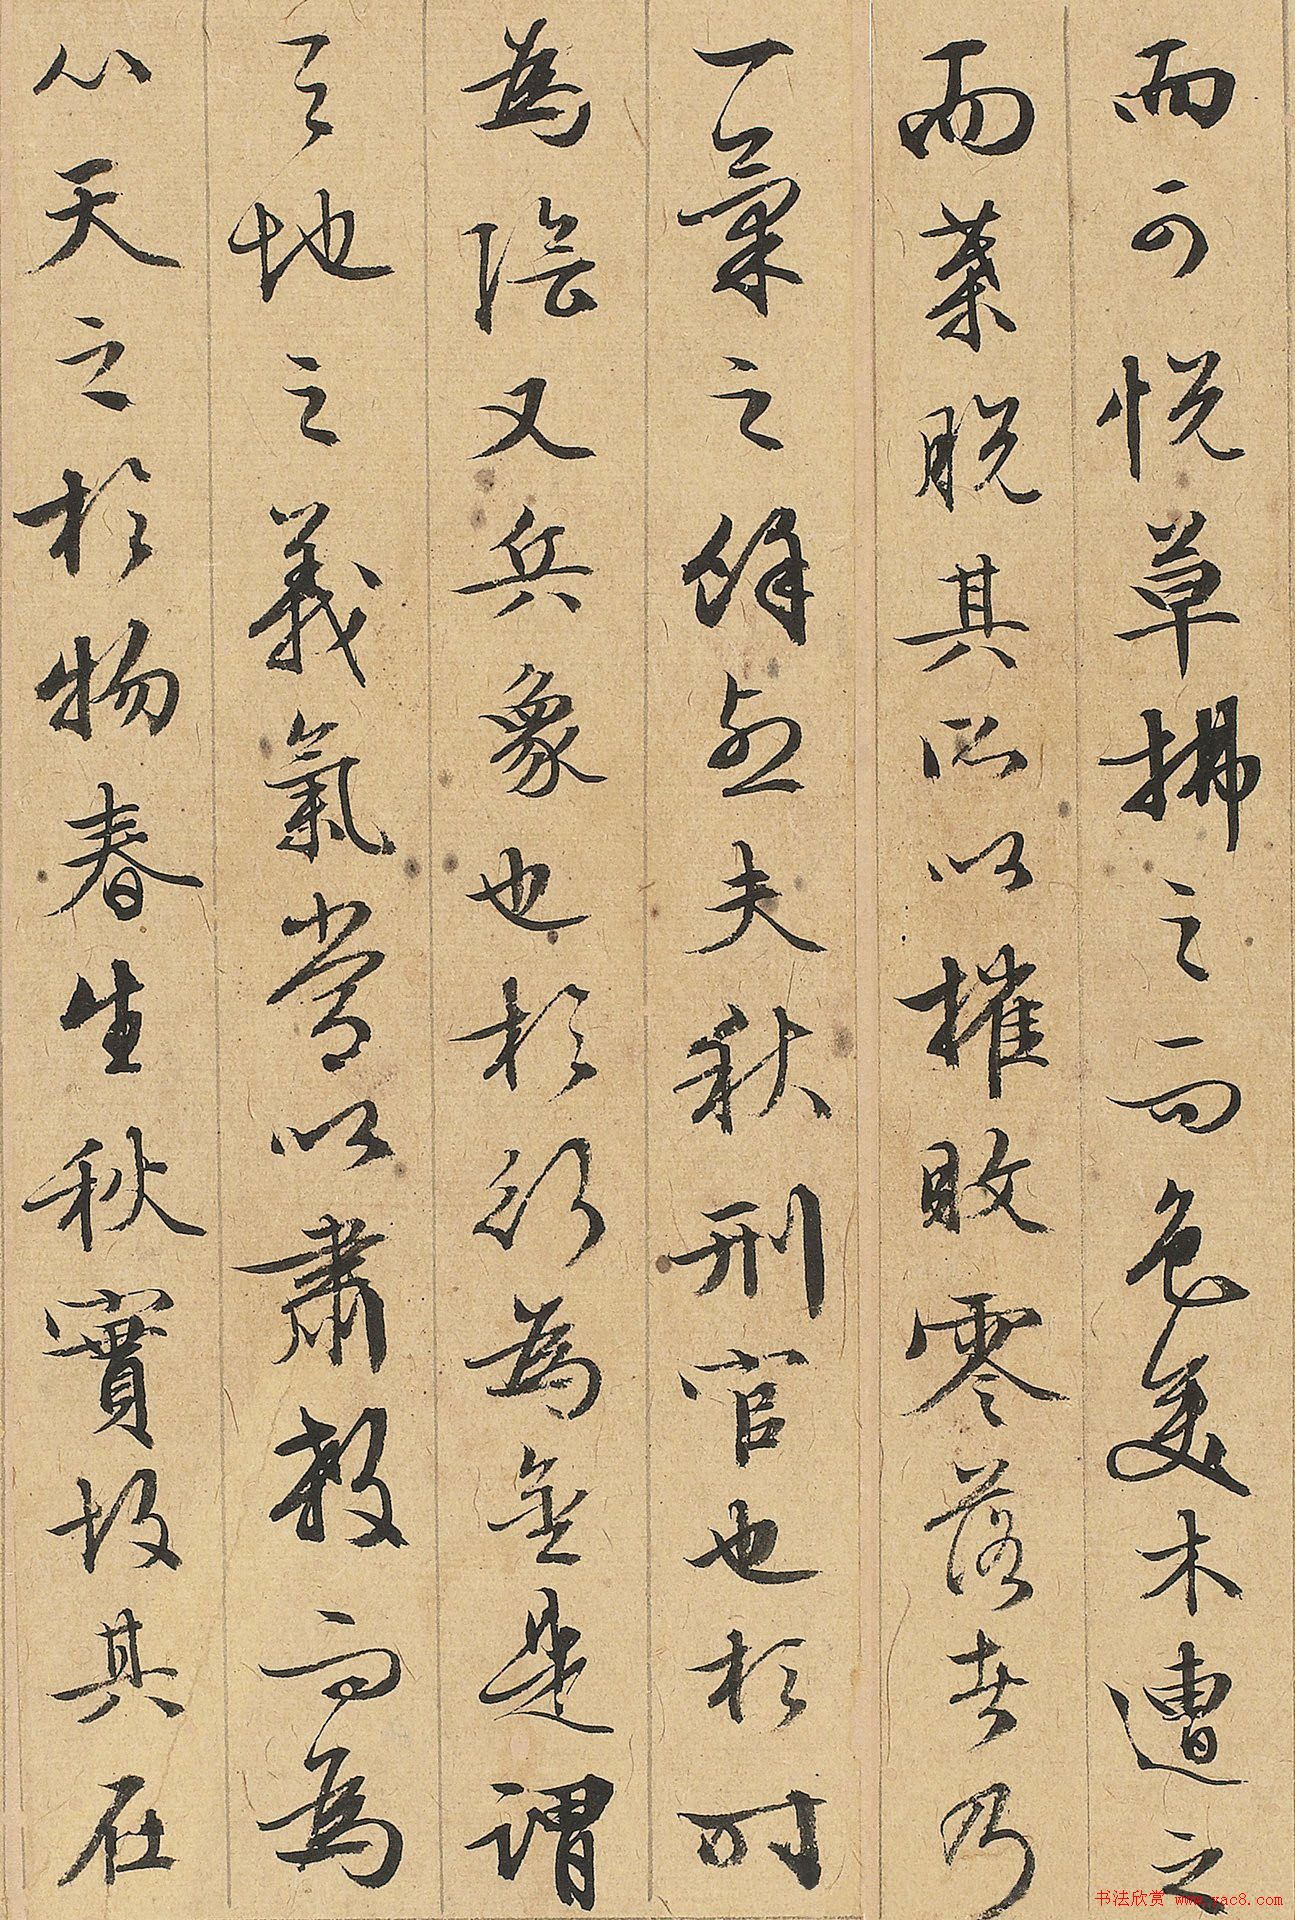 而可悅草拂之而色變木遭之
而葉脫其所以摧敗零落者乃
一氣之餘烈夫秋刑官也於時
為陰又兵象也於行為金是謂
天地之義氣常以肅殺而為
心天之於物春生秋實故其在
书法欣赏 www.yac8.com